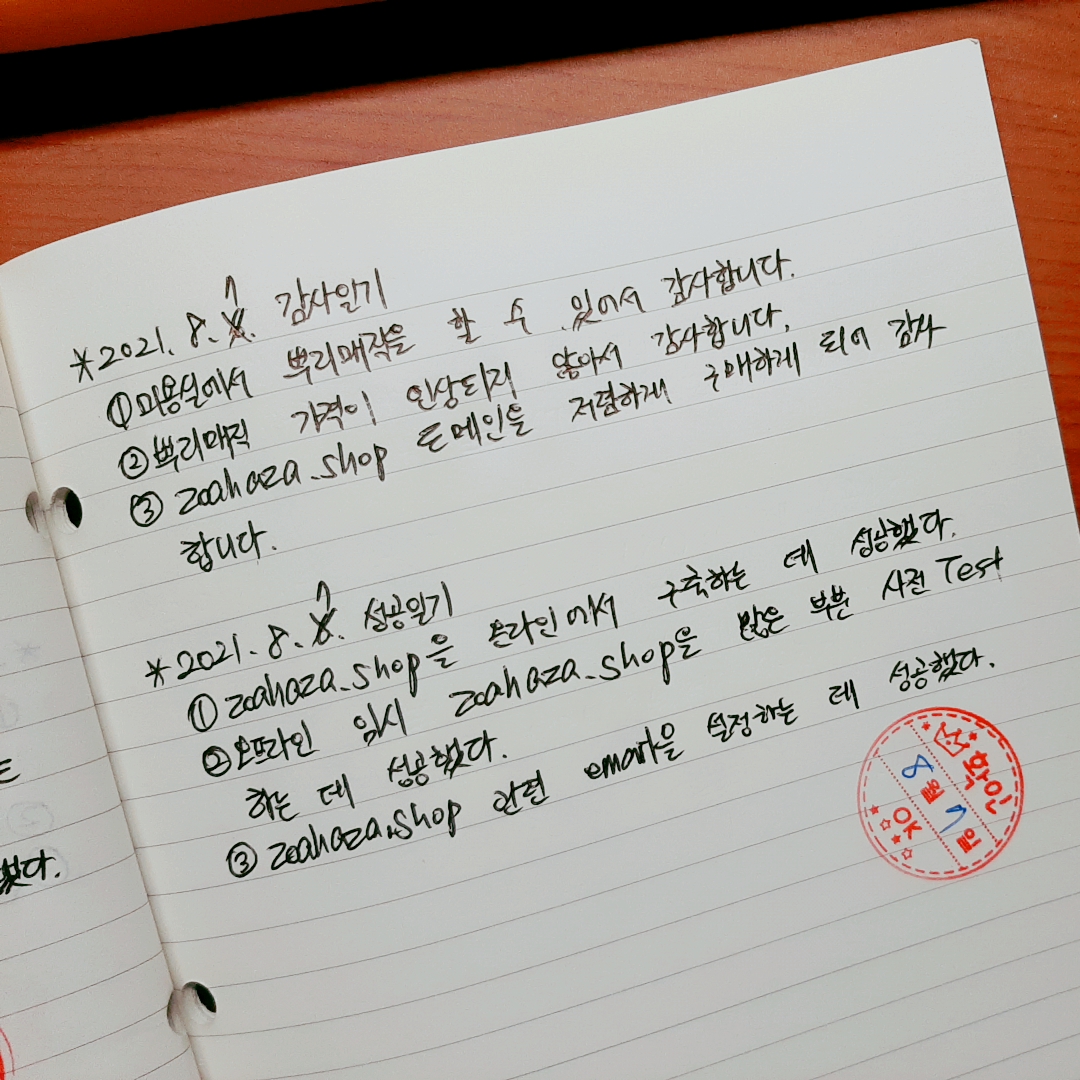 *2021. 8. 7. 감사일기
①미용실에서 뿌리매직을 할 수 있어서 감사합니다.
②뿌리매직 가격이 인상되지 않아서 감사합니다.
③ zoahaza.shop 도메인을 저렴하게 구매하게 되어 감사
합니다.
*2021. 8. 7. 성공일기
① zoahaza.shop을 온라인에서 구축하는 데 성공했다.
②오프라인 임시 zoahaza.shop을 많은 부분 사전 Test
하는 데 성공했다.
③ zoahaza.shop 관련 email을 설정하는 데 성공했다.
확인
8월 7일
OK
했다.